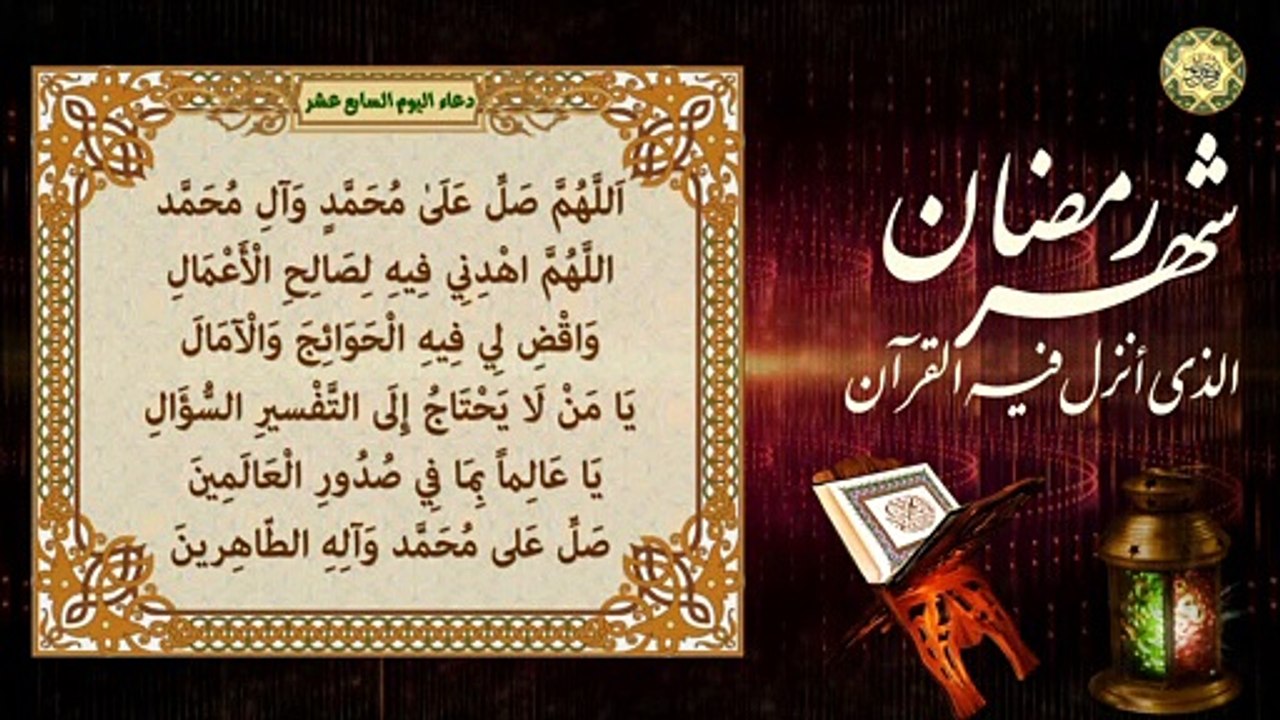 دعاء اليوم السابع عشر
اَللَّهُمَّ صَلِّ عَلَىٰ مُحَمَّدٍ وَآلِ مُحَمَّد
اللَّهُمَّ اهْدِنِي فِيهِ لِصَالِحِ الْأَعْمَالِ
وَاقْضِ لِي فِيهِ الْحَوَائِجَ وَالْآمَالَ
يَا مَنْ لَا يَحْتَاجُ إِلَى التَّفْسيرِ السُّؤَالِ
يَا عَالِماً بِمَا فِي صُدُورِ الْعَالَمِينَ
صَلِّ عَلى مُحَمَّد وَآلِهِ الطّاهِرينَ
شهر رمضان
الذی أنزل فیه القرآن